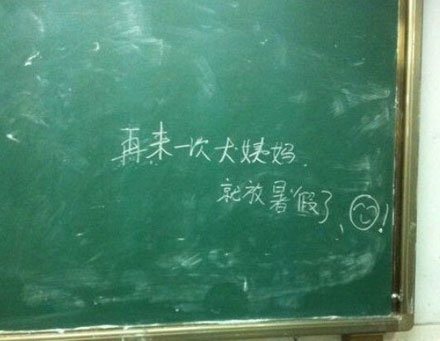 再来一次大姨妈
就放暑假了、!